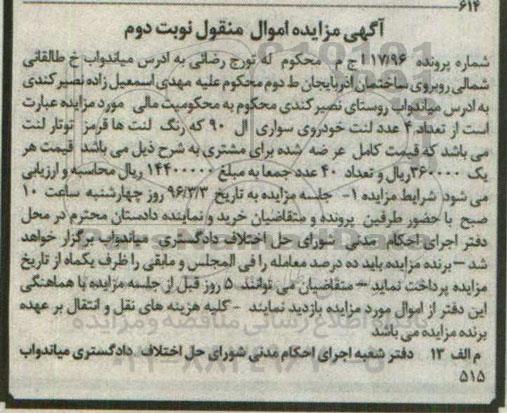 ۶۱۴
آگهی مزایده اموال منقول نوبت دوم
شماره پرونده ۱۱۷/۹۶ ج م محکوم له تورج رضائی به ادرس میاندواب خ طالقانی
شمالی روبروی ساختمان اذربایجان ط دوم محکوم علیه مهدی اسمعیل زاده نصیر کندی
به ادرس میاندواب روستای نصیر کندی محکوم به محکومیت مالی مورد مزایده عبارت
است از تعداد ۴ عدد لنت خودروی سواری ال ۹۰ که رنگ لنت ها قرمز توتار لنت
می باشد که قیمت کامل عرضه شده برای مشتری به شرح ذیل می باشد قیمت هر
یک ۳۶۰۰۰۰ ریال و تعداد ۴۰ عدد جمعا به مبلغ ۱۴۴۰۰۰۰۰ ریال محاسبه و ارزیابی
می شود شرایط مزایده ۱- جلسه مزایده به تاریخ ۹۶/۳/۳ روز چهارشنبه ساعت ۱۰
صبح با حضور طرفین پرونده و متقاضیان خرید و نماینده دادستان محترم در محل
دفتر اجرای احکام مدنی شورای حل اختلاف دادگستری میاندواب برگزار خواهد
شد – برنده مزایده باید ده درصد معامله را فی المجلس و مابقی را ظرف یکماه از تاریخ
مزایده پرداخت نماید – متقاضیان می توانند ۵ روز قبل از جلسه مزایده با هماهنگی
این دفتر از اموال مورد مزایده بازدید نمایند - کلیه هزینه های نقل و انتقال بر عهده
برنده مزایده می باشد
م الف ۱۳ دفتر شعبه اجرای احکام مدنی شورای حل اختلاف دادگستری میاندواب
۵۱۵